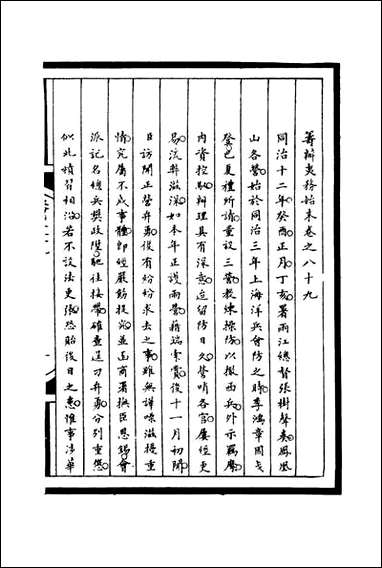 籌辦夷務始末卷之八十九
同治十二年癸酉正月丁亥署兩江總督張樹聲奏鳳凰
山各營始於同治三年上海洋兵會防之時李鴻章因戈
登巴夏禮所請重設三營教練操防以撤西兵外示羈縻
內資控馭辦理具有深意迨留防日久營哨各官屢經更
易流弊滋深如本年正護兩營藉端索賞復十一月初間
日訪聞正營弁勇復有紛紛求去之事雖無譁噪滋擾重
情究屬不成事體即經嚴飭提究並函商署撫臣恩錫會
派記名總兵樊政陞馳往接帶確查逞刁弁勇分別重懲
似此頑習相沿若不設法更張恐貽後日之患惟事涉華